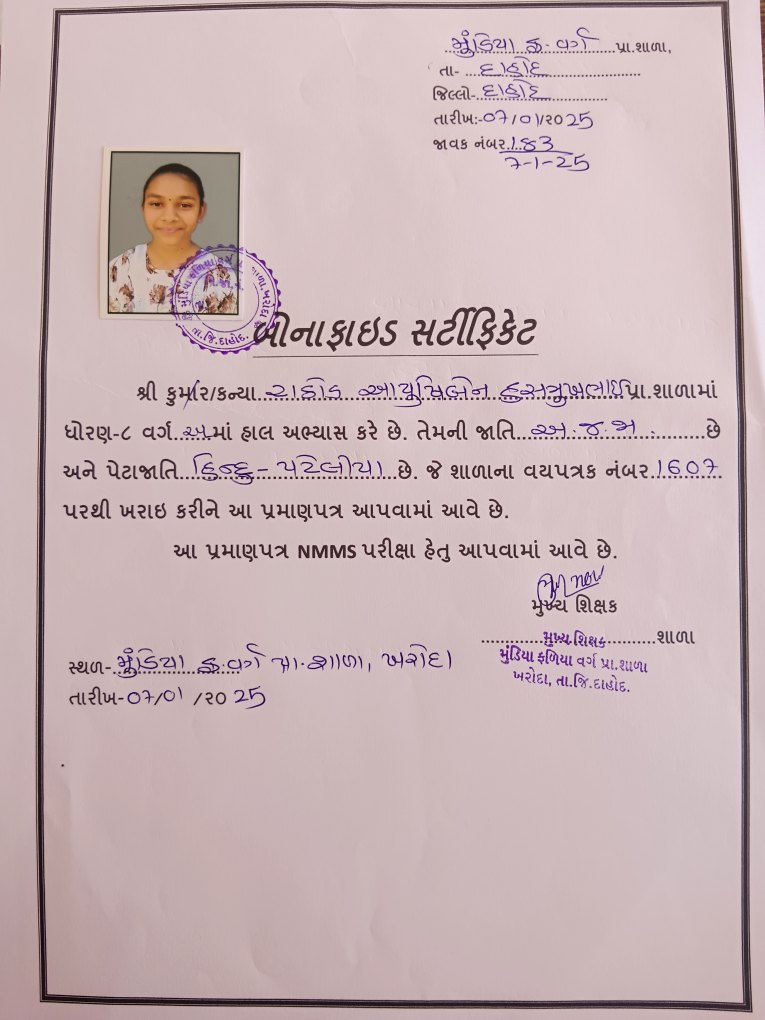 મુંડિયા ફ. વર્ગ પ્રા.શાળા,
તા- દાહોદ
જિલ્લો- દાહોદ
તારીખ:-07/01/૨૦25
જાવક નંબર.183
7-1-25
બોનાફાઇડ સર્ટીફિકેટ
શ્રી કુમાર/કન્યા રાઠોડ આયુષિબેન હસમુખભાઇ પ્રા.શાળામાં
ધોરણ-૮ વર્ગ.અ.માં હાલ અભ્યાસ કરે છે. તેમની જાતિ અ.જ.જા. છે
અને પેટાજાતિ હિન્દુ - પટેલીયા છે. જે શાળાના વયપત્રક નંબર.1607
પરથી ખરાઇ કરીને આ પ્રમાણપત્ર આપવામાં આવે છે.
આ પ્રમાણપત્ર NMMS પરીક્ષા હેતુ આપવામાં આવે છે.
મુખ્ય શિક્ષક
મુખ્ય શિક્ષક શાળા
મુંડિયા ફળિયા વર્ગ પ્રા.શાળા
ખરોદા, તા.જિ.દાહોદ.
સ્થળ- મુંડિયા ફ. વર્ગ પ્રા. શાળા, ખરોદા
તારીખ-07/01 /૨૦25
મુંડિયા ફળિયા વર્ગ શાળા, ખરોદા
તા.જિ.દાહોદ.